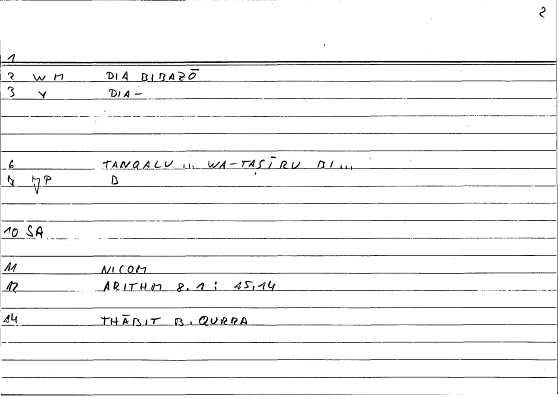 2
1
2 W M DIA BIBAZŌ
3 V DIA-
6 TANQALU ... WA-TAṢĪRU BI ...
P B
10 SA
11 NICOM
12 ARITHM 8.1 : 15,14
14 THĀBIT B. QURRA